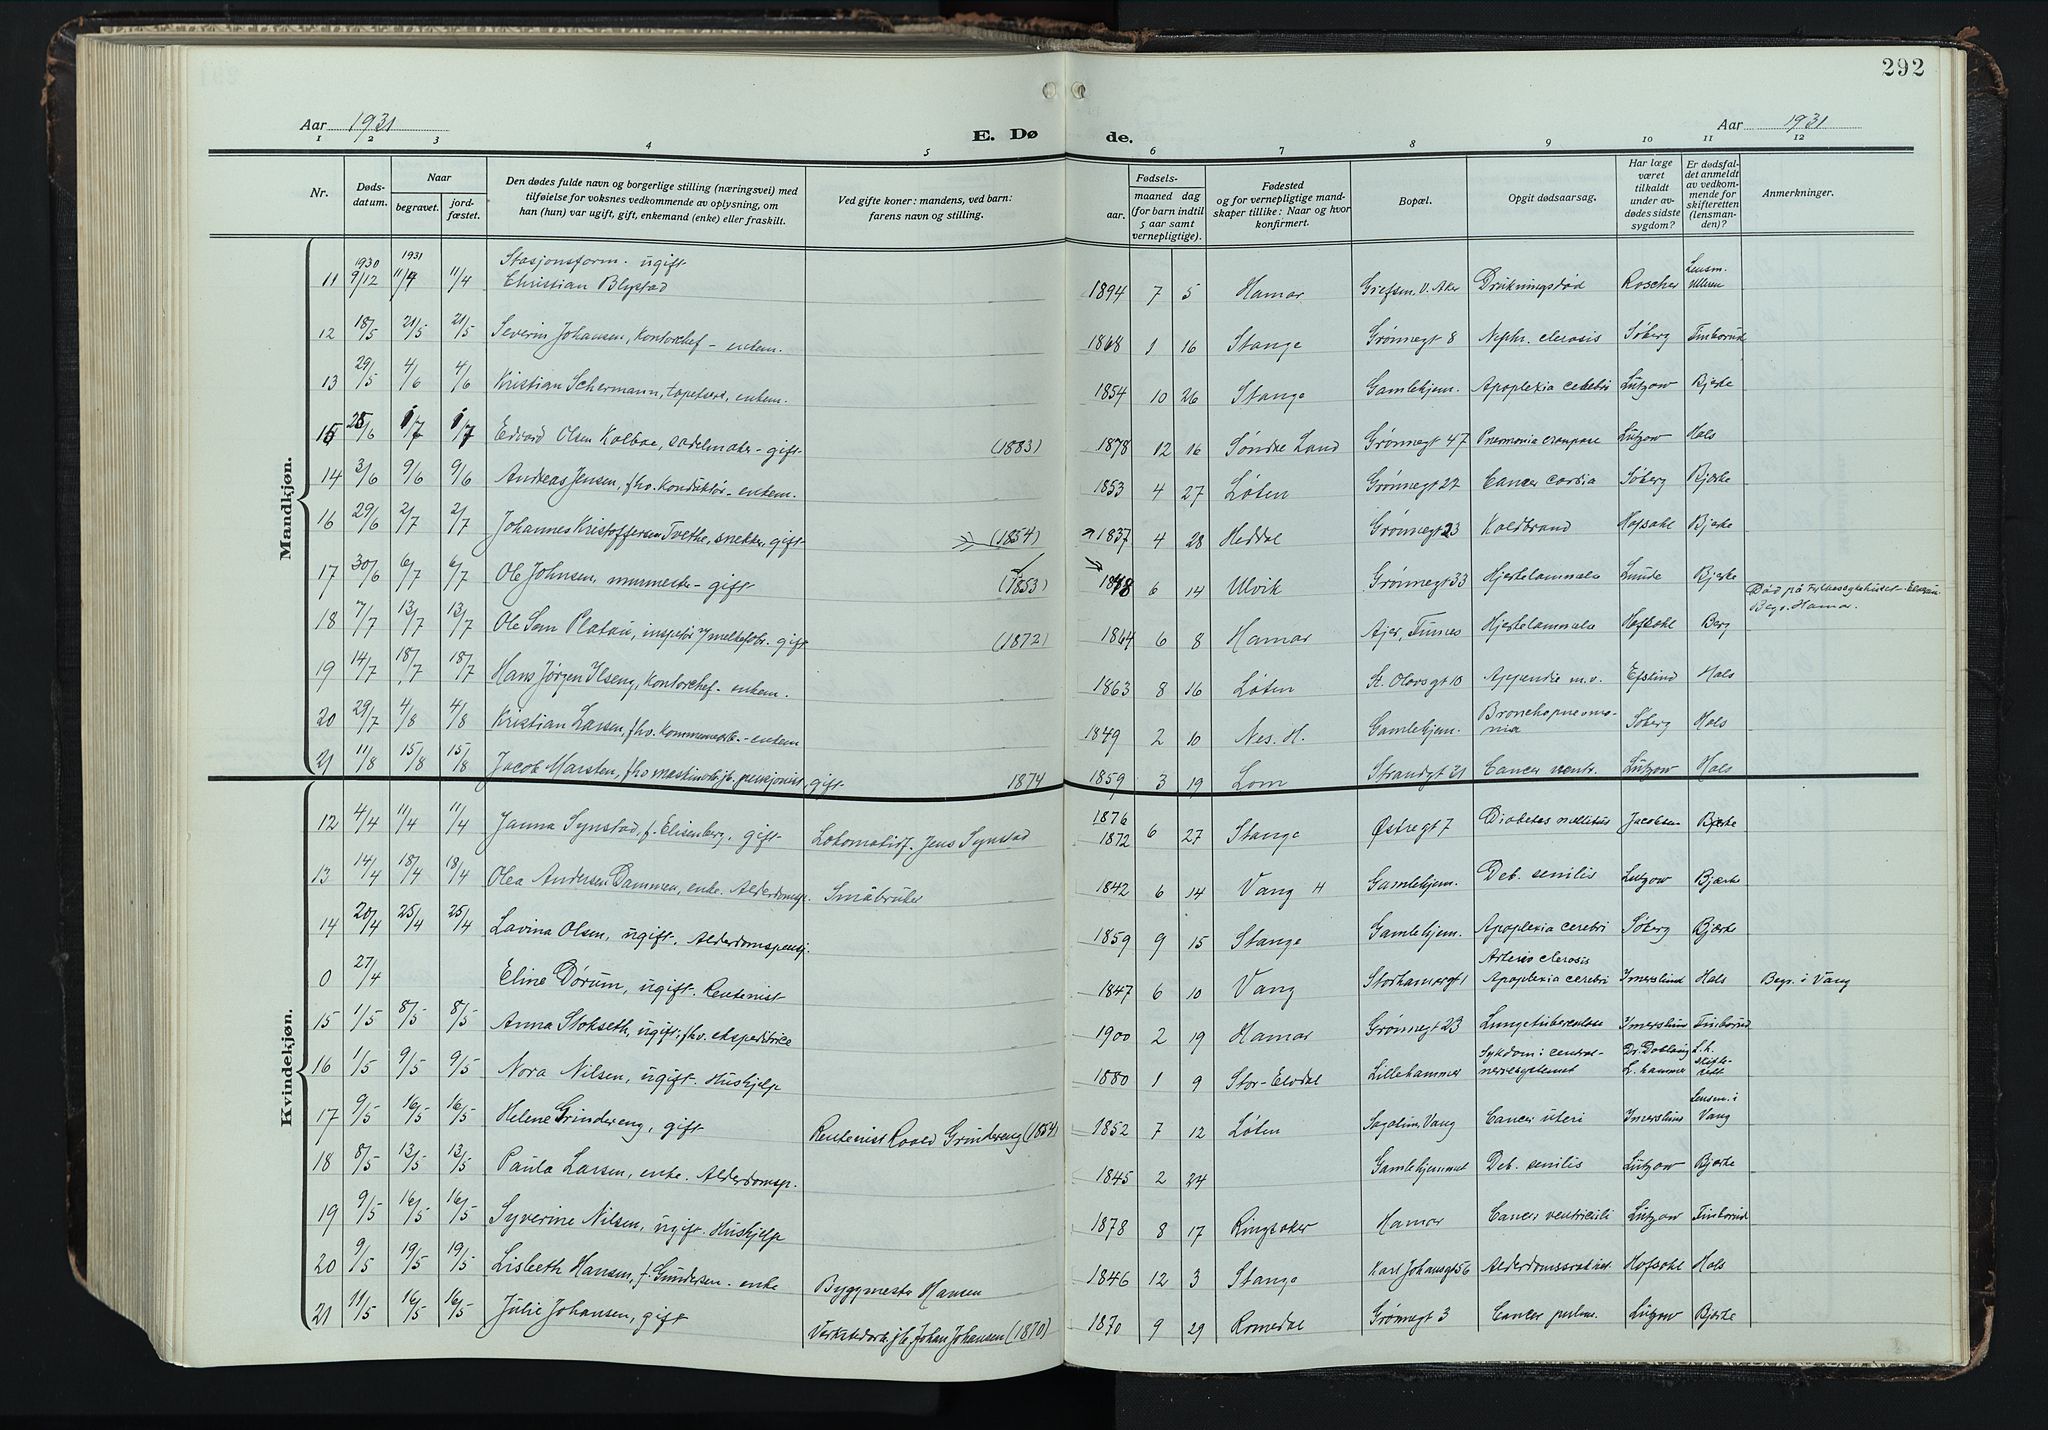 292
Aar 1931
E. Døde.
Aar 1931
1 2 3 4 5 6 7 8 9 10 11 12
Nr.
Døds-datum.
Naar
begravet.
jord-fæstet.
Den dødes fulde navn og borgerlige stilling (næringsvei) med
tilføielse for voksnes vedkommende av oplysning, om
han (hun) var ugift, gift, enkemand (enke) eller fraskilt.
Ved gifte koner: mandens, ved barn:
farens navn og stilling.
Fødsels-
aar.
maaned dag
(for barn indtil
5 aar samt
vernepligtige).
Fødested
og for vernepligtige mand-
skaper tillike: Naar og hvor
konfirmert.
Bopæl.
Opgit dødsaarsag.
Har læge
været
tilkaldt
under av-
dødes sidste
sygdom?
Er dødsfal-
det anmeldt
av vedkom-
mende for
skifteretten
(lensman-
den)?
Anmerkninger.
Mandkjøn.
1930 1931 Stasjonsform. ugift
11 9/12 11/4 11/4 Christian Blystad 1894 7 5 Hamar Grefsen, V. Aker Drukningsdød Roscher Lensm. Ullern
12 18/5 21/5 21/5 Severin Johansen, Kontorchef - enkem. 1868 1 16 Stange Grønnegt 8 Nephr. clerosis Søberg Finborud
13 29/5 4/6 4/6 Kristian Schermann, tapetsere, enkem. 1854 10 26 Stange Gamlehjem. Apoplexia cerebri Lützow Bjerke
15 25/6 1/7 1/7 Edvard Olsen Kolboe, sadelmaker - gift (1883) 1878 12 16 Søndre Land Grønnegt 47 Pneumonia croupose Lützow Hals
14 3/6 9/6 9/6 Andreas Jensen, fhv. Konduktør - enkem. 1853 4 27 Løten Grønnegt 22 Cancer cardia Søberg Bjerke
16 29/6 2/7 2/7 Johannes Kristoffersen Tvethe, snekker, gift (1854) 1837 4 28 Heddal Grønnegt 23 Koldbrand Hofsøhl Bjerke
17 30/6 6/7 6/7 Ole Johnsen, murmester - gift (1853) 1848 6 14 Ulvik Grønnegt 33 Hjertelammelse Lunde Bjerke
18 7/7 13/7 13/7 Ole Sem Platou, inspektør v/melkefabr. gift (1872) 1864 6 8 Hamar Ajer, Furnes Hjertelammelse Hofsøhl Berg Død på Fylkessykehuset - Elverum Begr. Hamar.
19 14/7 18/7 18/7 Hans Jørgen Ilseng, Kontorchef - enkem. 1863 8 16 Løten St. Olavsgt 10 Appendic m.v. Efslind Hals
20 29/7 4/8 4/8 Kristian Larsen, fhv. - enkem 1849 2 10 Nes. H. Gamlehjem. Bronchopneumonia Søberg Hals
21 11/8 15/8 15/8 Jacob Marsten, fhv maskinarb, jb. pensjonist, gift 1874 1859 3 19 Lom Strandgt 21 Cancer ventr. Lützow Hals
Kvindekjøn.
12 4/4 11/4 11/4 Janna Synstad, f. Elisenberg, gift Lokomotivf. Jens Synstad 1876 1872 6 27 Stange Østregt 7 Diabetes mellitus Jacobsen Bjerke
13 14/4 18/4 18/4 Olea Andersen Dammen, enke. Alderdomsp. Småbruker 1842 6 14 Vang H Gamlehjem. Deb. senilis Lützow Bjerke
14 20/4 25/4 25/4 Lovina Olsen, ugift. Alderdomspensj. 1859 9 15 Stange Gamlehjem. Apoplexia cerebri Søberg Bjerke
0 27/4 Eline Dørum, ugift. Rentenist 1847 6 10 Vang Storhamargt 1 Arteriosclerosis Apoplexia cerebri Imerslund Hals Begr. i Vang
15 1/5 8/5 8/5 Anna Stokseth, ugift, fhv. ekspeditrice 1900 2 19 Hamar Grønnegt 23 Lungetuberculose Imerslund Finborud
16 1/5 9/5 9/5 Nora Nilsen, ugift. Hushjelp 1880 1 9 Stor-Elvdal Lillehammer Sykdom i central-nervesystemet Dr. L. hammer L.h. skifterett
17 9/5 16/5 16/5 Helene Grindereng, gift Rentenist Roald Grindereng (1854) 1852 7 12 Løten Sagatun, Vang Cancer uteri Imerslund Lensm. i Vang
18 8/5 13/5 13/5 Paula Larsen, enke. Alderdomsp. 1845 2 24 Gamlehjemmet Deb. senilis Lützow Bjerke
19 9/5 16/5 16/5 Syverine Nilsen, ugift. Hushjelp 1878 8 17 Ringsaker Hamar Cancer ventriculi Lützow Finborud
20 9/5 19/5 19/5 Lisbeth Hansen, f. Gundersen. enke Byggmester Hansen 1846 12 3 Stange Karl Johansgt 56 Alderdomssvakhet Hofsøhl Hals
21 11/5 16/5 16/5 Julie Johansen, gift Verkstedarb. jb. Johan Johansen (1870) 1870 9 29 Romedal Grønnegt 3 Cancer pulm. Lützow Bjerke